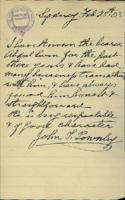 Sydney Feb 25th
I have known the bearer
Abdul Jan for the past
three years & have had
many business transactions
with him, & have always
found him honest &
straightforward.
He is very respectable
& of good character
John T.